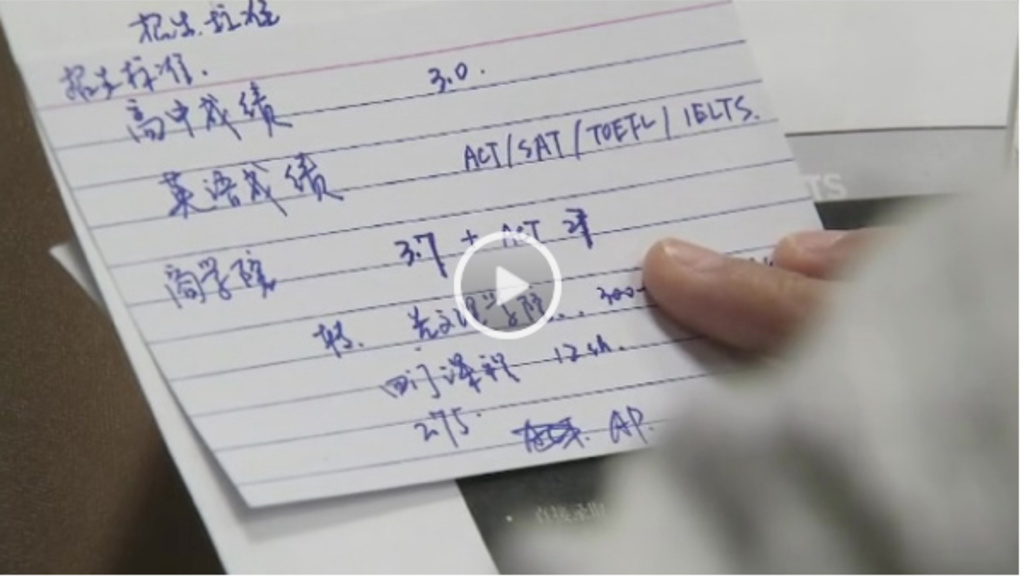 招生标准
招生标准.
高中成绩 3.0.
英语成绩 ACT/SAT/TOEFL/IELTS.
商学院 3.7 + ACT
转. 先文理学院..
四门课程 12sh.
2.75. AP.
TS